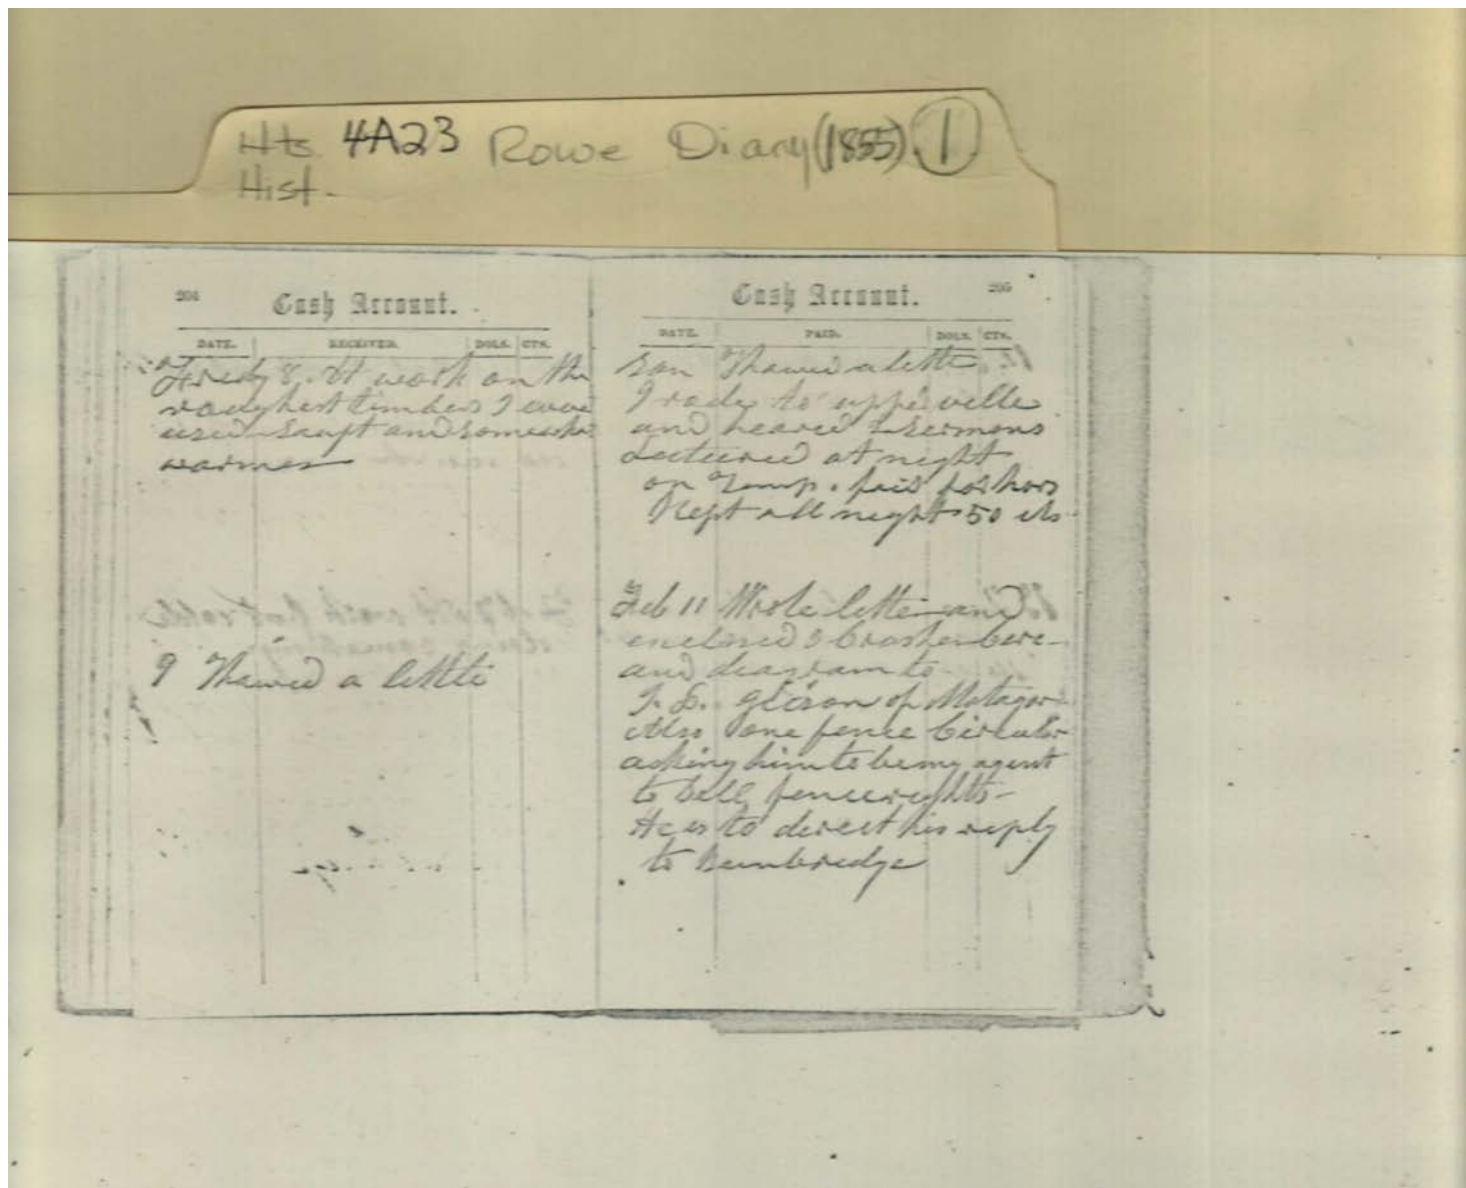 Hts 4A23 Rowe Diary (1855) 1
Hist.
204
Cash Account.
DATE. RECEIVED. DOLS. CTS.
8. At work on the
roughest timber I ever
used and
warmer
9 Thawed a little
Cash Account. 205
DATE. PAID. DOLS. CTS.
Thawed a little
I rode to
and heared 2 sermons
Lectured at night
on Temp. paid for hors
Kept all night 50 cts
Feb 11 Wrote letter and
enclosed 3
and diagram to
of Matagor
Also one fence Circular
asking him to be my agent
to sell fence rights
He is to direct his reply
to Bainbridge